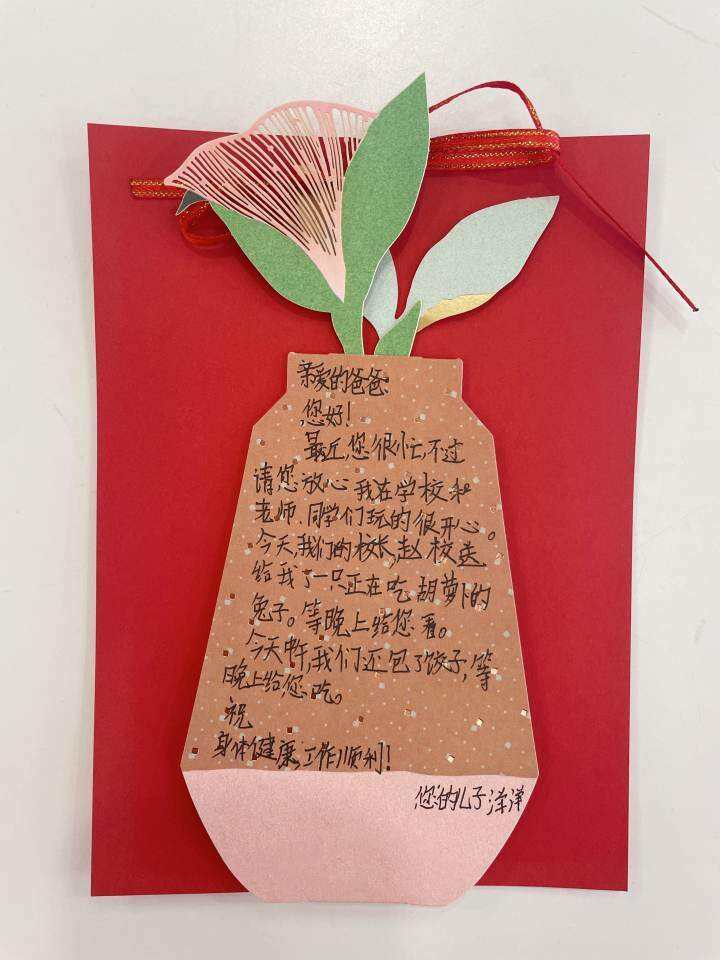 亲爱的爸爸:
您好!
最近,您很忙,不过
请您放心我在学校和
老师、同学们玩的很开心。
今天,我们的校长,赵校送
给我了一只正在吃胡萝卜的
兔子。等晚上给您看。
今天中午,我们还包了饺子,等
晚上给您吃。
祝
身体健康,工作顺利!
您的儿子:泽泽